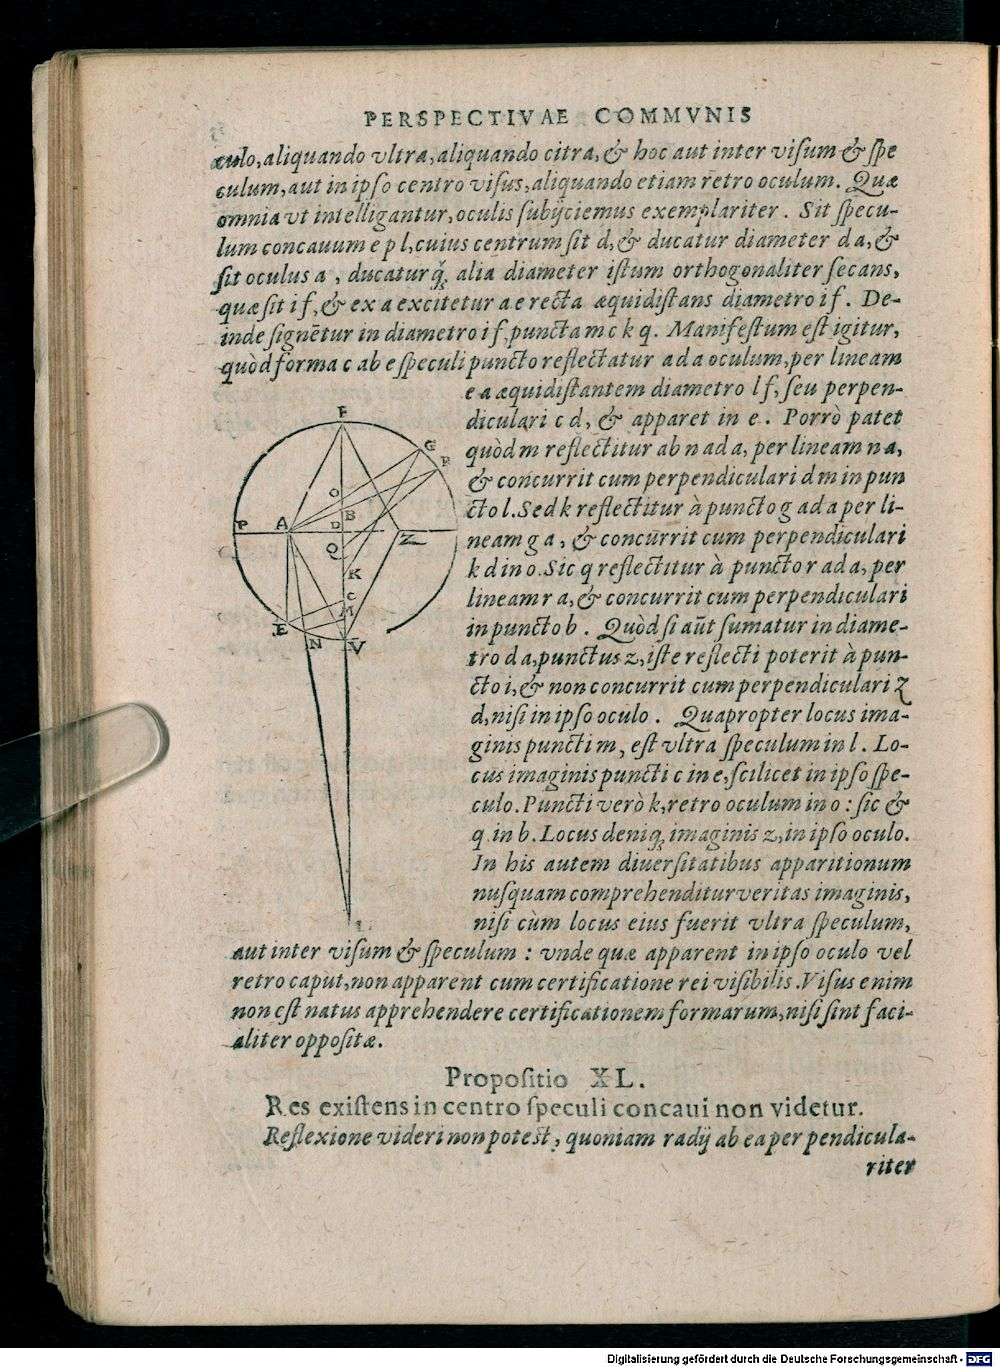 PERSPECTIVAE COMMVNIS
culo, aliquando vltra, aliquando citra, & hoc aut inter visum & spe
culum, aut in ipso centro visus, aliquando etiam retro oculum. Quæ
omnia vt intelligantur, oculis subijciemus exemplariter. Sit specu-
lum concauum e p l, cuius centrum sit d, & ducatur diameter d a, &
sit oculus a, ducaturq́; alia diameter istum orthogonaliter secans,
quæ sit i f, & ex a excitetur a e recta æquidistans diametro i f. De-
inde signētur in diametro i f, puncta m c k q. Manifestum est igitur,
quòd forma c ab e speculi puncto reflectatur ad a oculum, per lineam
e a æquidistantem diametro l f, seu perpen-
diculari c d, & apparet in e. Porrò patet
quòd m reflectitur ab n ad a, per lineam n a,
& concurrit cum perpendiculari d m in pun
cto l. Sed k reflectitur à puncto g ad a per li-
neam g a, & concurrit cum perpendiculari
k d in o. Sic q reflectitur à puncto r ad a, per
lineam r a, & concurrit cum perpendiculari
in puncto b. Quòd si aūt sumatur in diame-
tro d a, punctus z, iste reflecti poterit à pun-
cto i, & non concurrit cum perpendiculari z
d, nisi in ipso oculo. Quapropter locus ima-
ginis puncti m, est vltra speculum in l. Lo-
cus imaginis puncti c in e, scilicet in ipso spe-
culo. Puncti verò k, retro oculum in o: sic &
q in b. Locus deniq; imaginis z, in ipso oculo.
In his autem diuersitatibus apparitionum
nusquam comprehenditur veritas imaginis,
nisi cùm locus eius fuerit vltra speculum,
F
G
R
O
P
A
B
D
Z
Q
K
C
M
E
N
V
L
aut inter visum & speculum: vnde quæ apparent in ipso oculo vel
retro caput, non apparent cum certificatione rei visibilis. Visus enim
non est natus apprehendere certificationem formarum, nisi sint faci-
aliter oppositæ.
Propositio XL.
Res existens in centro speculi concaui non videtur.
Reflexione videri non potest, quoniam radij ab ea perpendicula-
riter
Digitalisierung gefördert durch die Deutsche Forschungsgemeinschaft - DFG